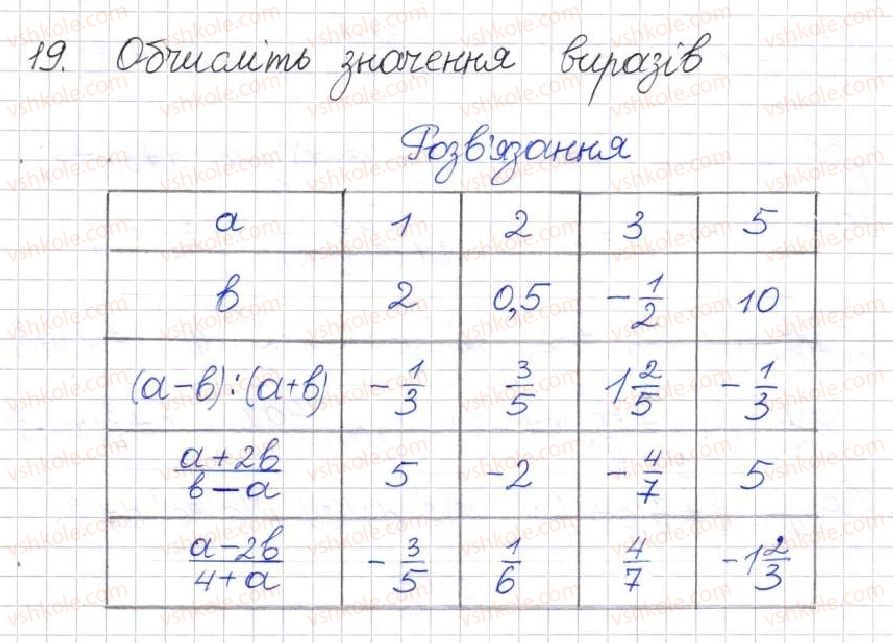 19. Обчисліть значення виразів
Розв'язання
a 1 2 3 5
в 2 0,5 -1/2 10
(a-в):(a+в) -1/3 3/5 1 2/5 -1/3
a+2в/в-a 5 -2 -4/7 5
a-2в/4+a -3/5 1/6 4/7 -1 2/3